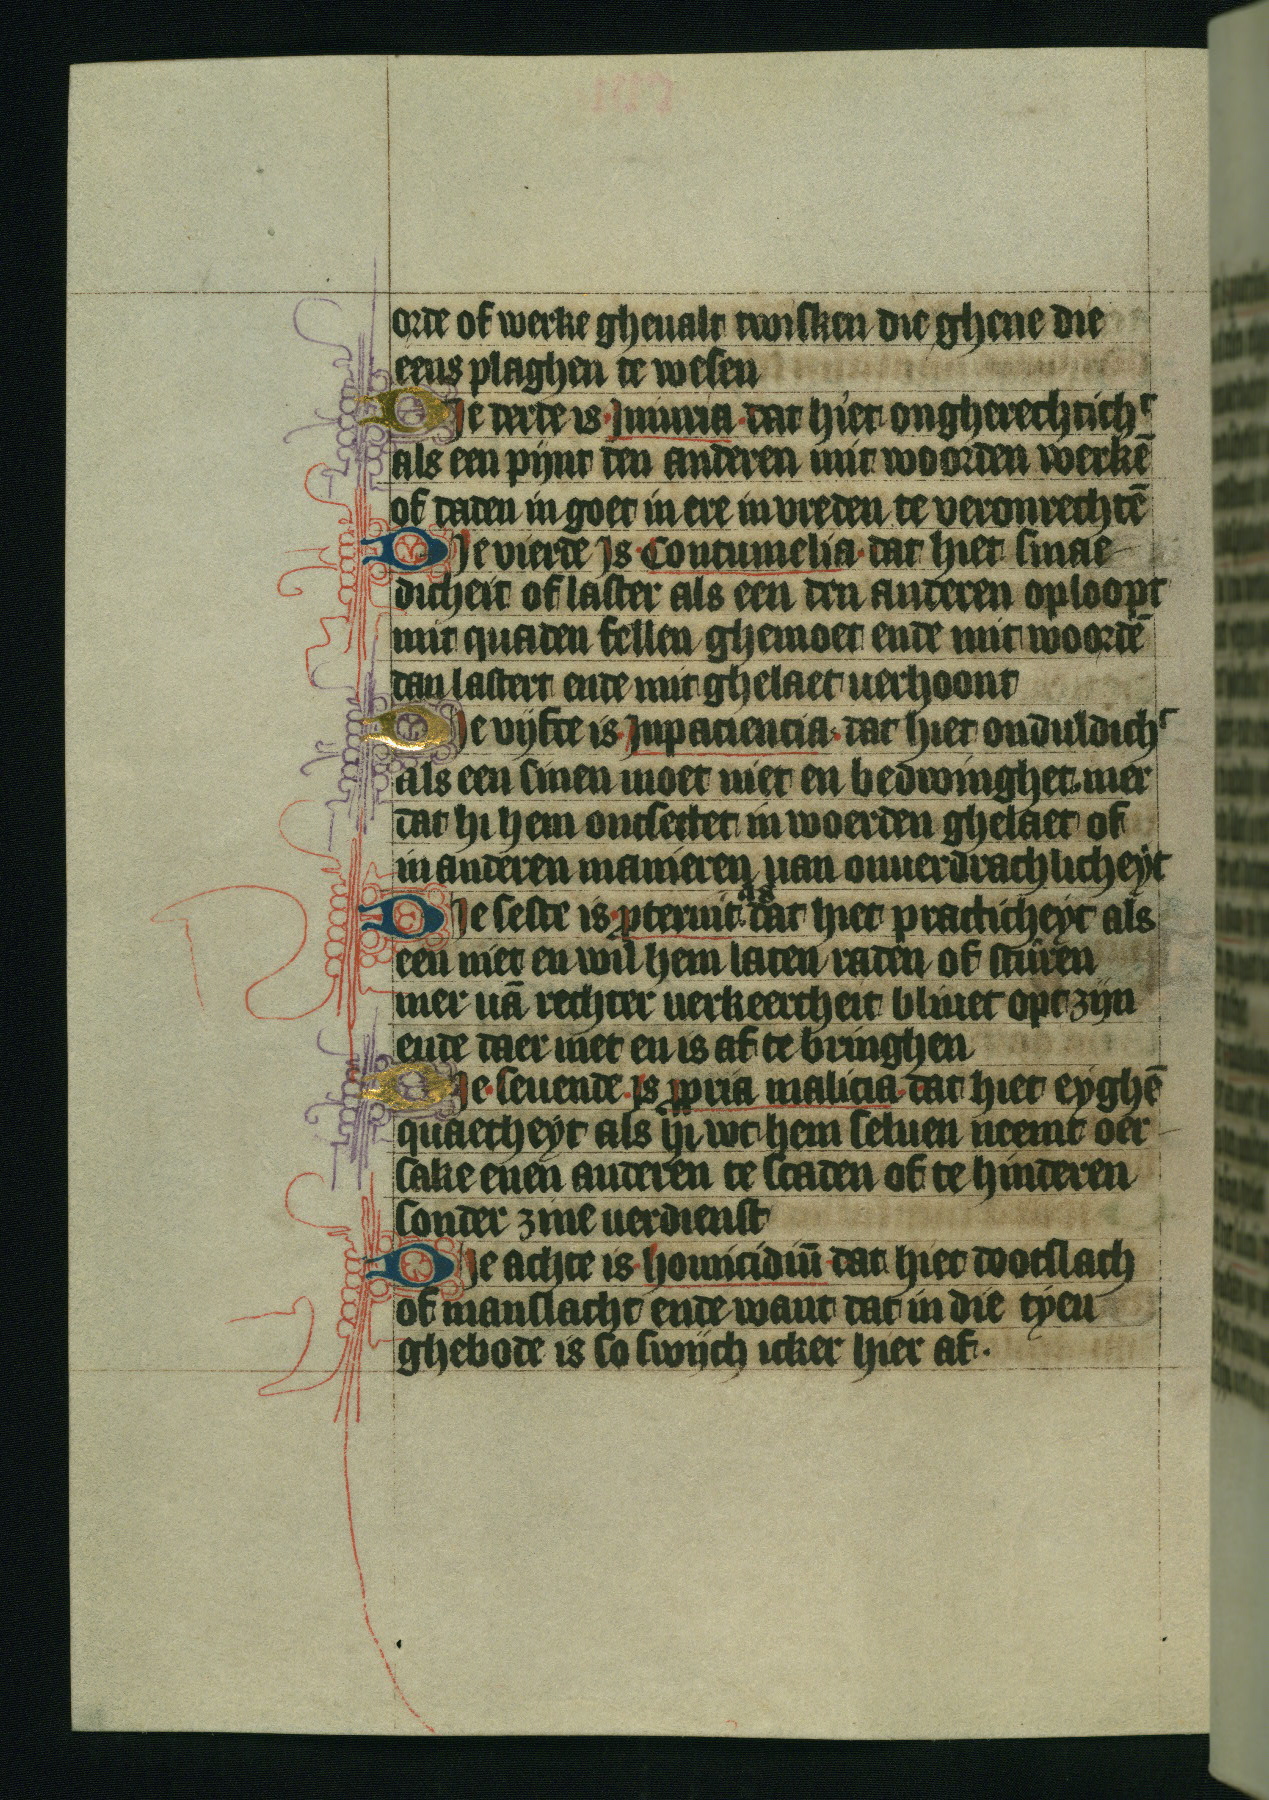 orde of werke gheualt twisken die ghene die
eens plaghen te wesen
Die derde is Iniuria dat hiet ongherechtichᵗ
als een pijnt den anderen mit woorden werkē
of daden in goet in ere in vreden te veronrechtē
Die vierde is Contumelia dat hiet smae
dicheit of laster als een den anderen oploopt
mit quaden fellen ghemoet ende mit woordē
dan lastert ende mit ghelaet uerhoont
Die vijfte is Inpaciencia dat hiet onduldichᵗ
als een sinen moet niet en bedwinghet mer
dat hi hem ontsettet in woerden ghelaet of
in anderen manieren uan onuerdrachlicheyt
Die seste is ꝑteruitas dat hiet pratticheyt als
een niet en wil hem laten raden of sturen
mer uā rechter uerkeertheit bliuet opt zijn
ende daer niet en is af te bringhen
Die seuende is ꝓpria malicia dat hiet eyghē
quaetheyt als hi wt hem seluen neemt oer
sake enen anderen te scaden of te hinderen
sonder zine uerdienst
Die achte is homicidiū dat hiet dootslach
of manslacht ende want dat in die tyen
ghebode is so swijch icker hier af.